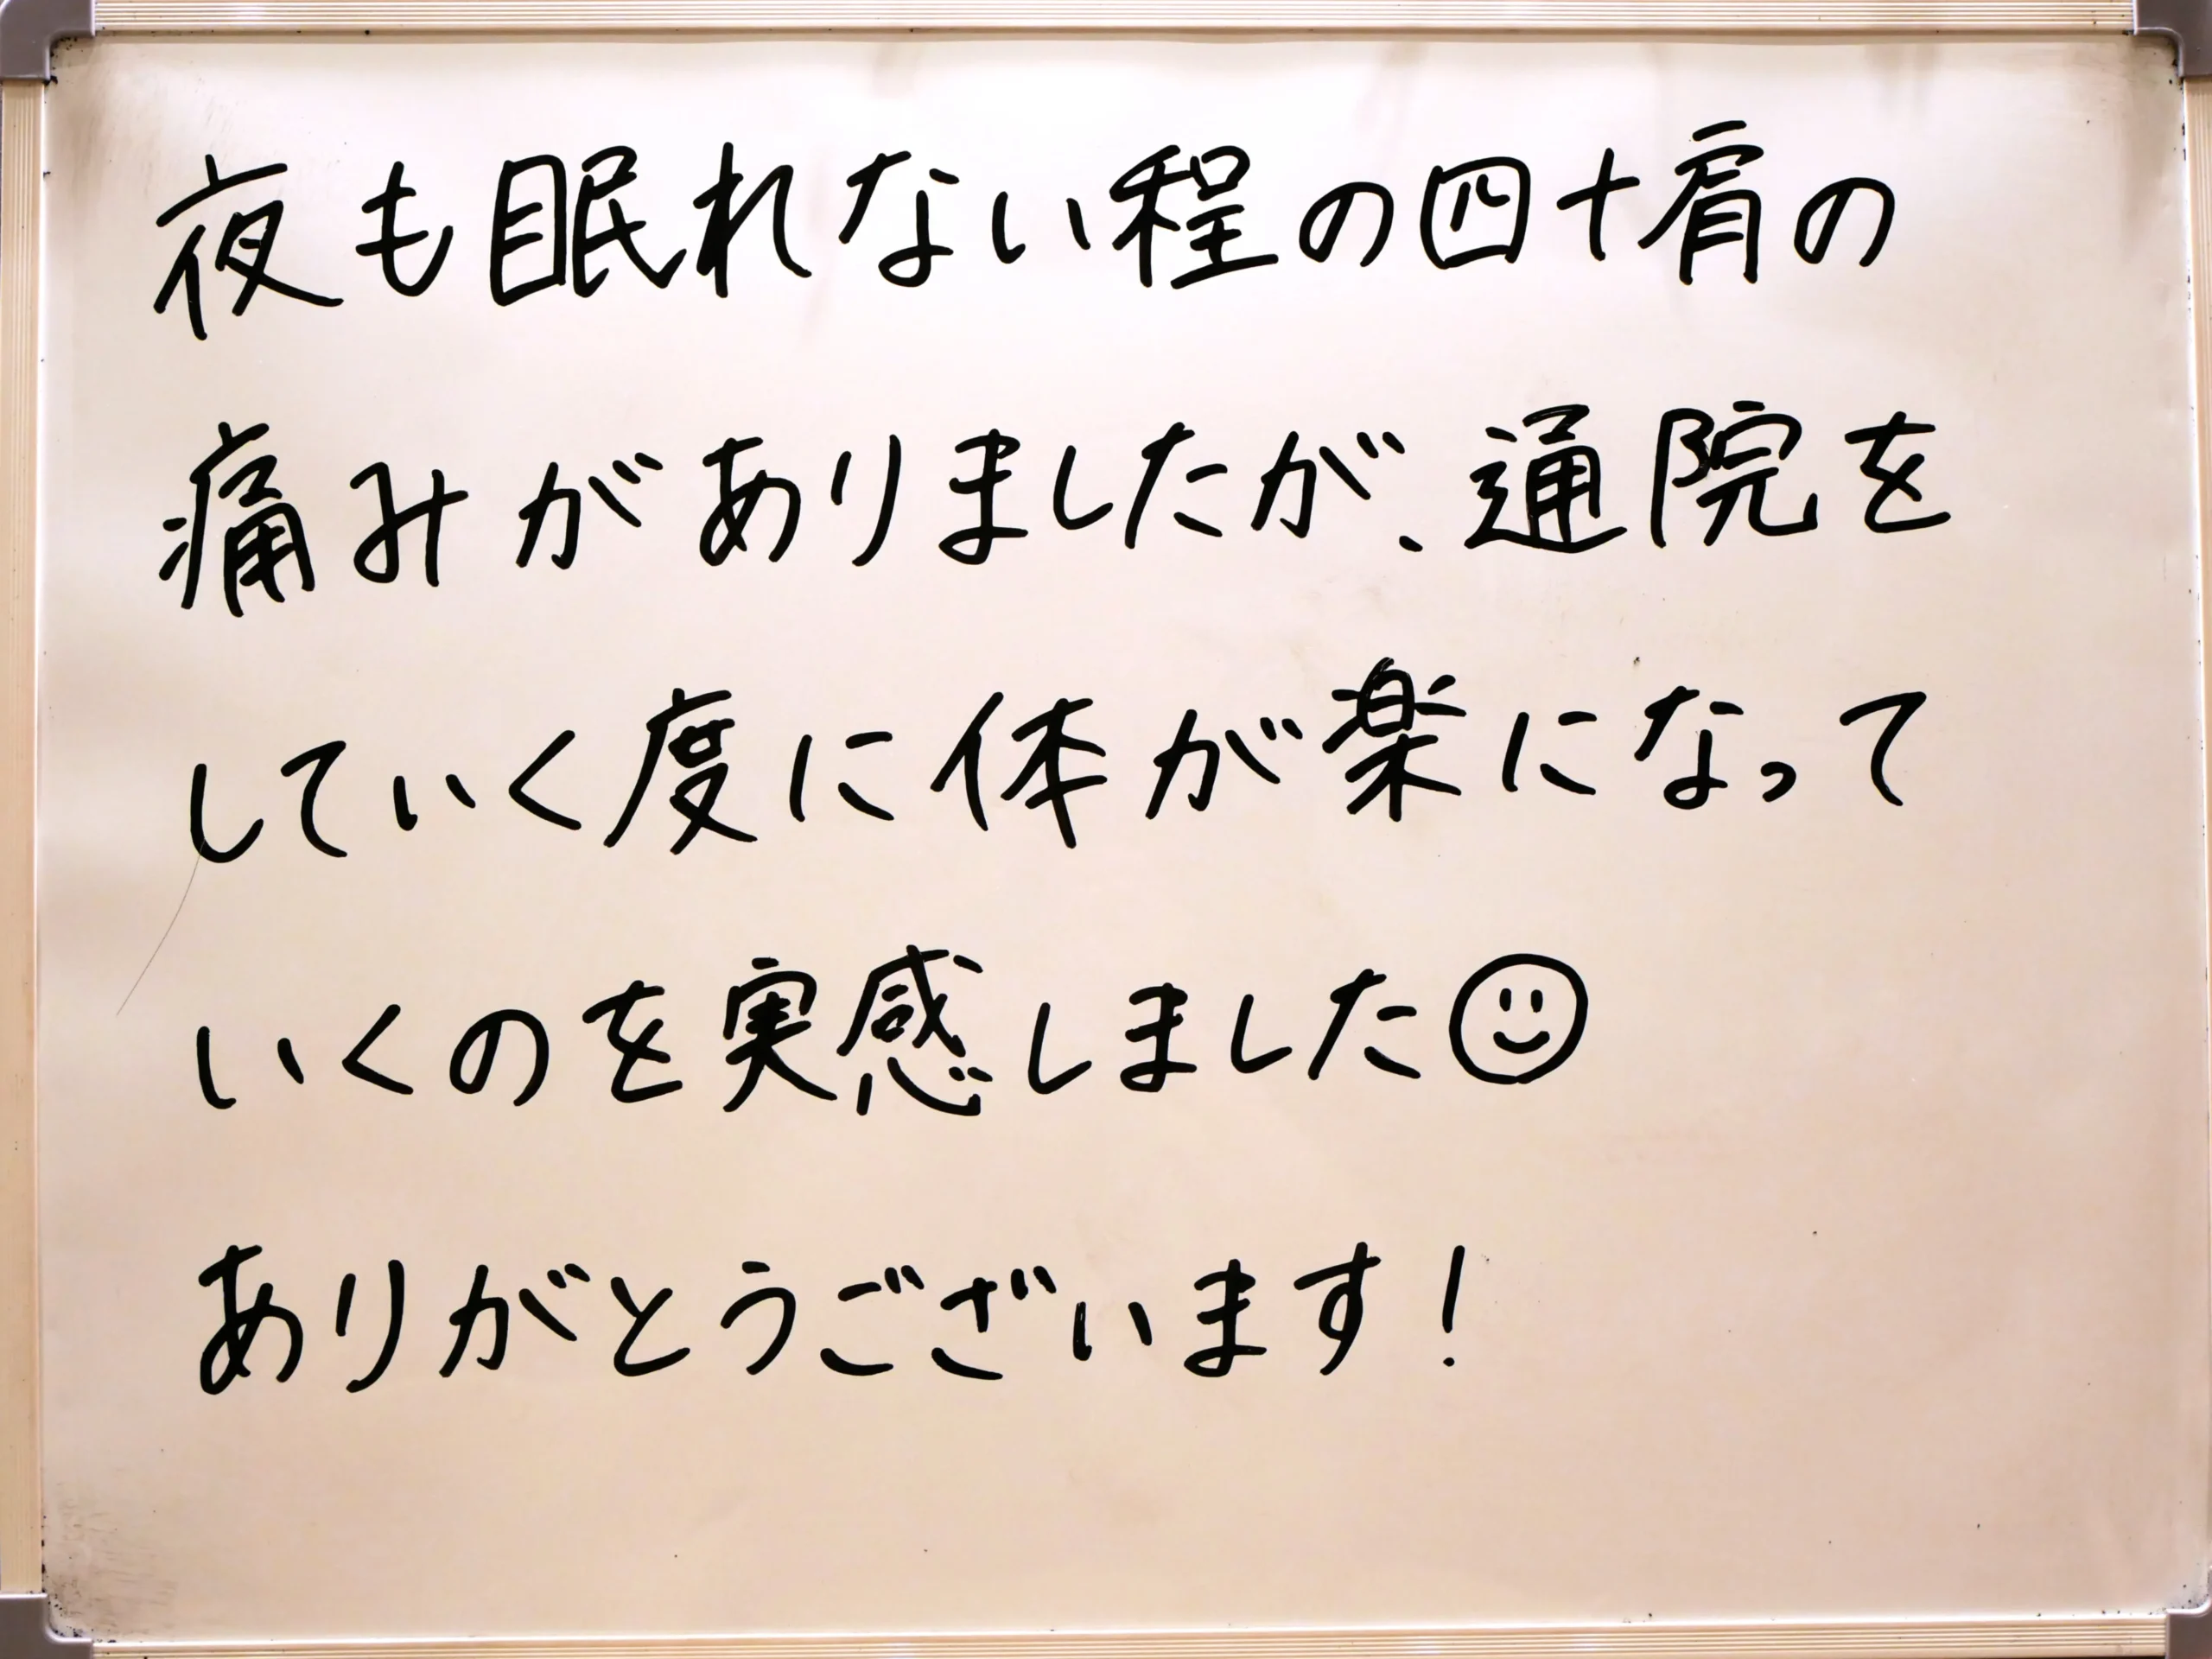 夜も眠れない程の四十肩の
痛みがありましたが、通院を
していく度に体が楽になって
いくのを実感しました☺
ありがとうございます!